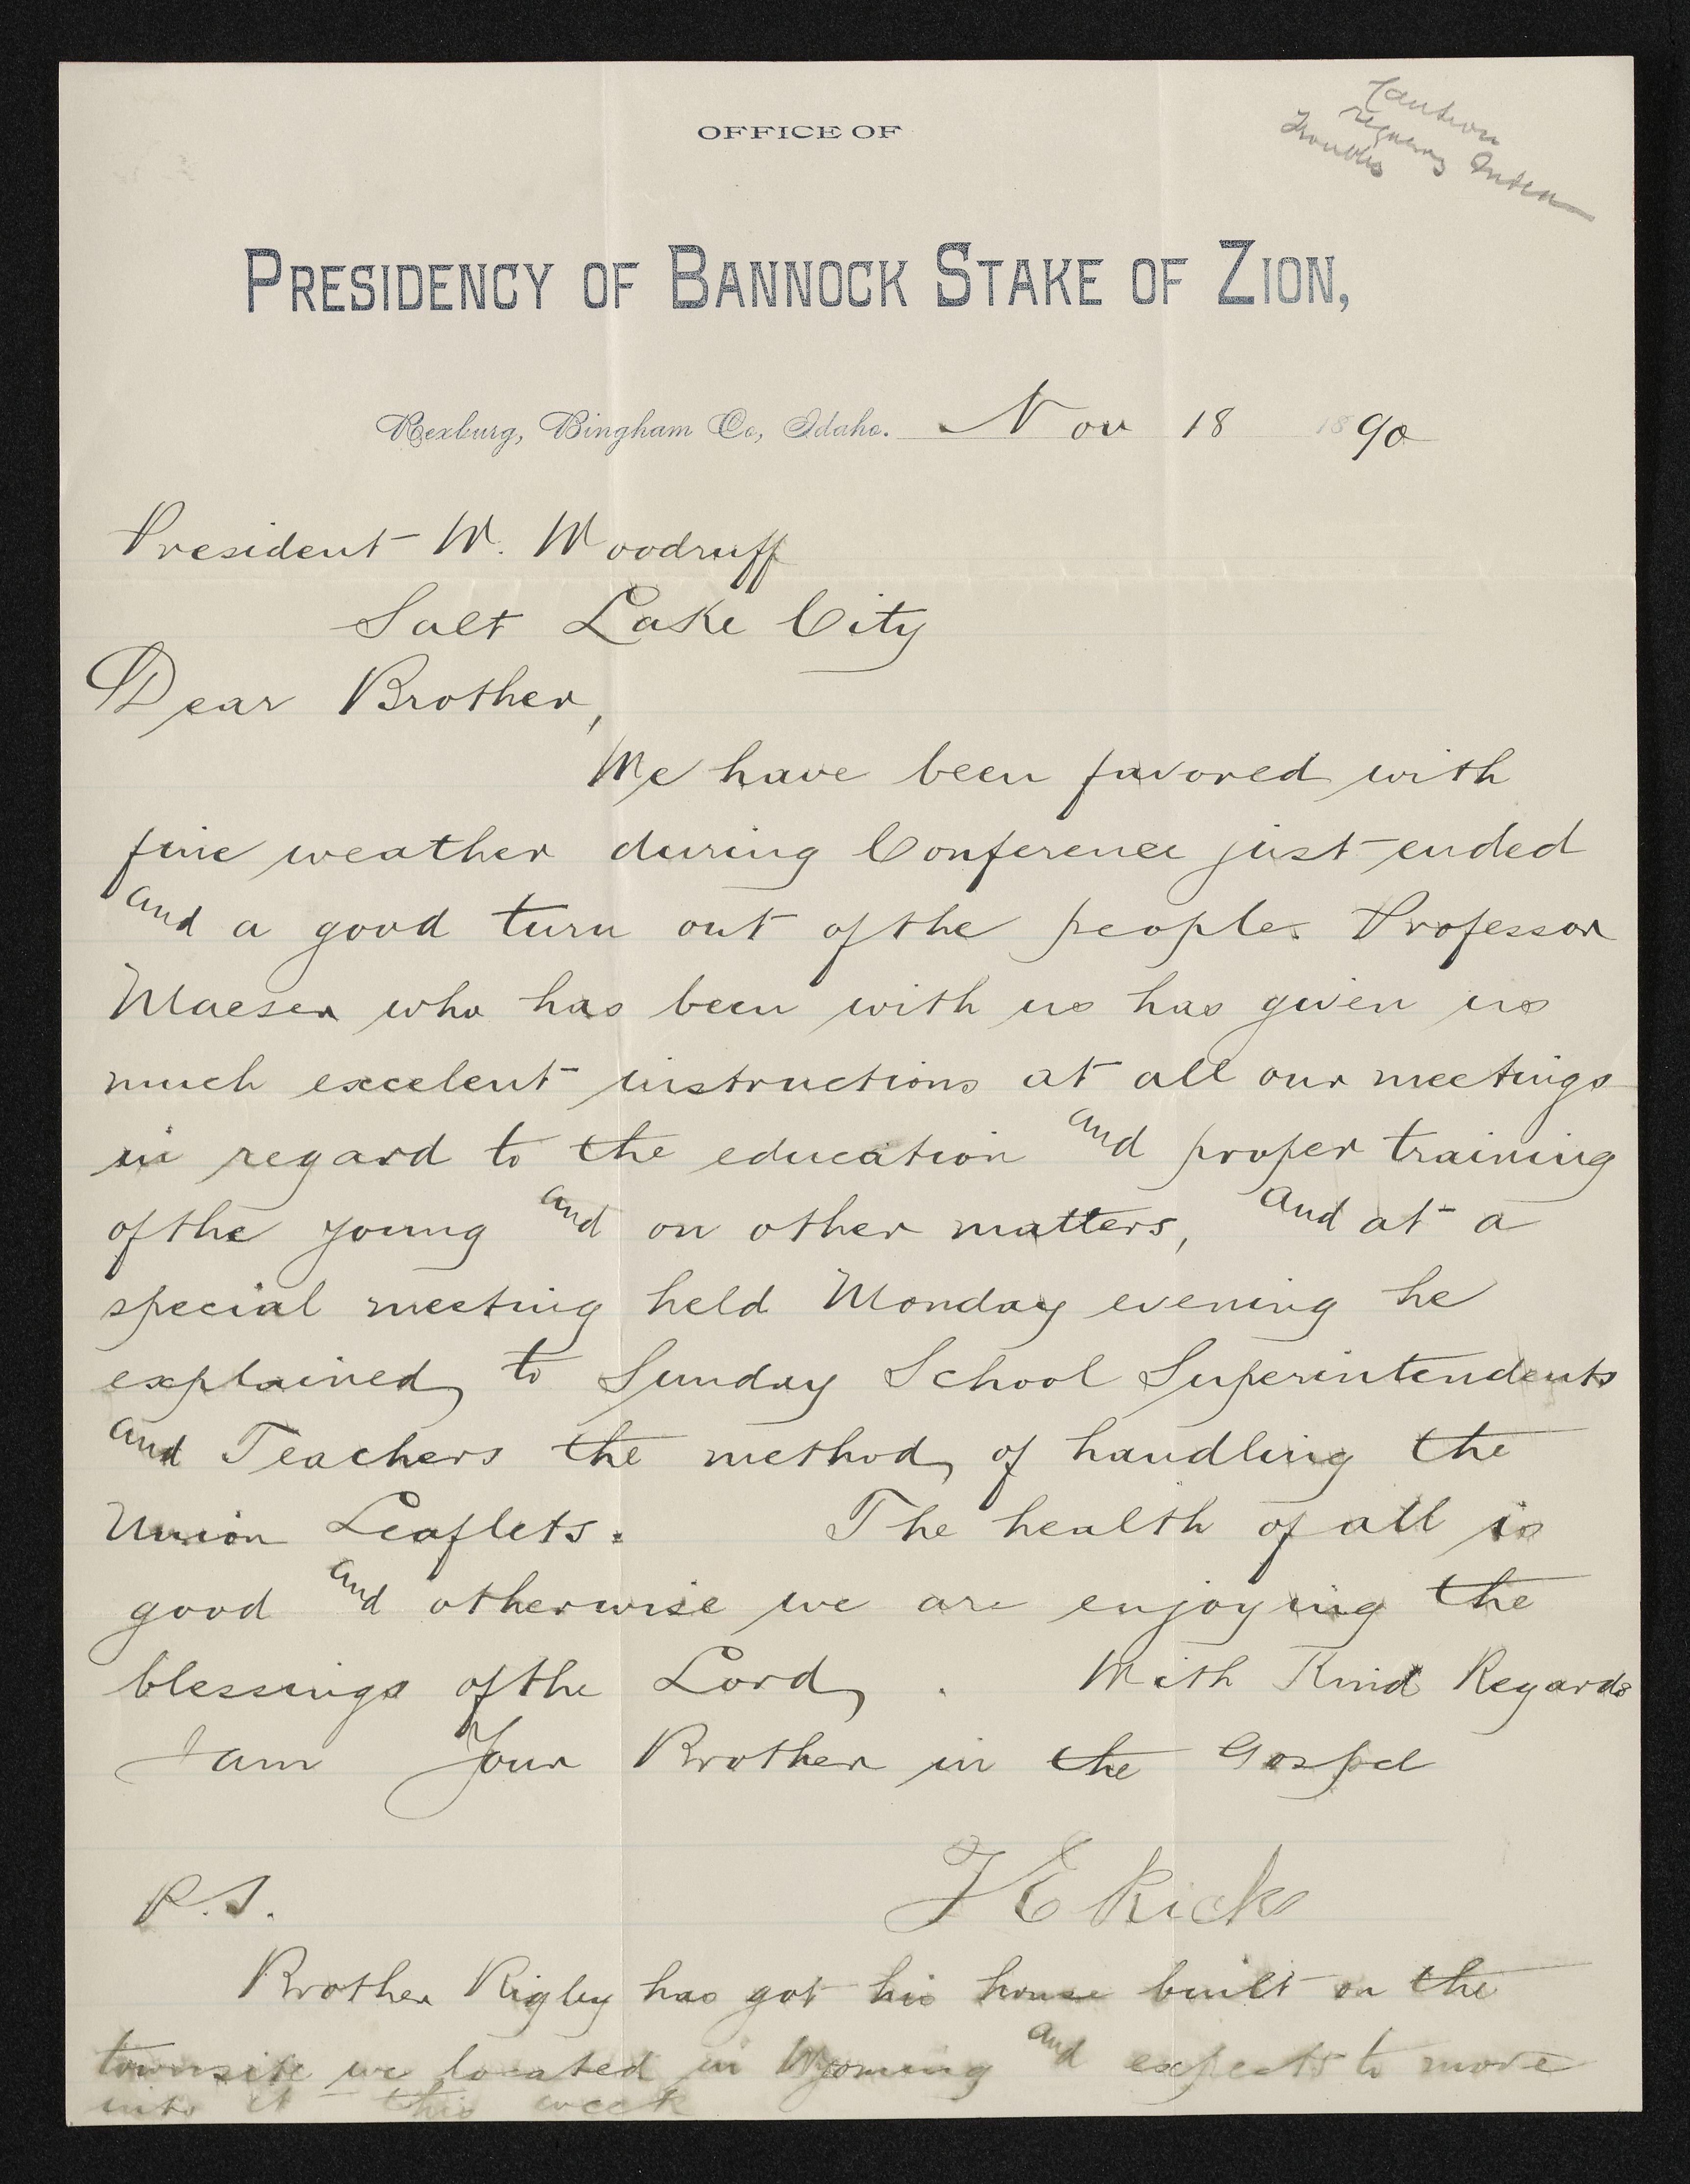 OFFICE OF
Caution
regarding Indian
troubles
PRESIDENCY OF BANNOCK STAKE OF ZION,
Rexburg, Bingham Co, Idaho. Nov 18 1890
President W. Woodruff
Salt Lake City
Dear Brother,
We have been favored with
fine weather during Conference just ended
and a good turn out of the people. Professor
Maeser who has been with us has given us
much excelent instructions at all our meetings
in regard to the education and proper training
of the young and on other matters, and at a
special meeting held Monday evening he
explained to Sunday School Superintendents
and Teachers the method of handling the
Union Leaflets. The health of all is
good and otherwise we are enjoying the
blessings of the Lord. With Kind Regards
I am Your Brother in the Gospel
T E Ricks
P.S.
Brother Rigby has got his house built on the
townsite we located in Wyoming and expects to move
into it this week